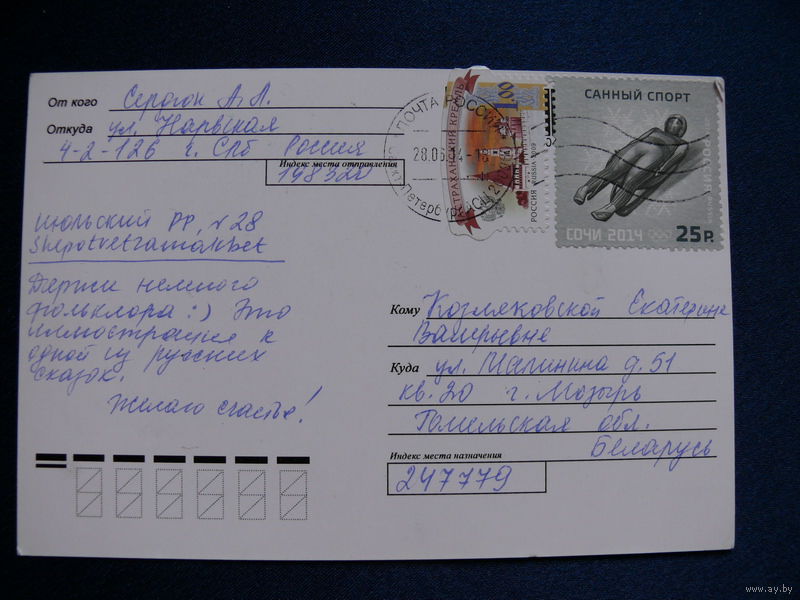 От кого Серогон А. Л.
Откуда ул. Нарвская
4-2-126 г. СПб Россия
Индекс места отправления
198320
июльский РР, №28
shepotvetramakbet
Держи немного
фольклора :) Это
иллюстрация к
одной из русских
сказок.
Желаю счастья!
ПОЧТА РОССИИ
28.06.14-18
Санкт-Петербург
АСТРАХАНСКИЙ КРЕМЛЬ
1.00
РОССИЯ ROSSIJA 2009
САННЫЙ СПОРТ
РОССИЯ
СОЧИ 2014
25 Р.
Кому Козляковской Екатерине
Валерьевне
Куда ул. Малинина д. 51
кв. 20 г. Мозырь
Гомельская обл.
Беларусь
Индекс места назначения
247779
www.ay.by